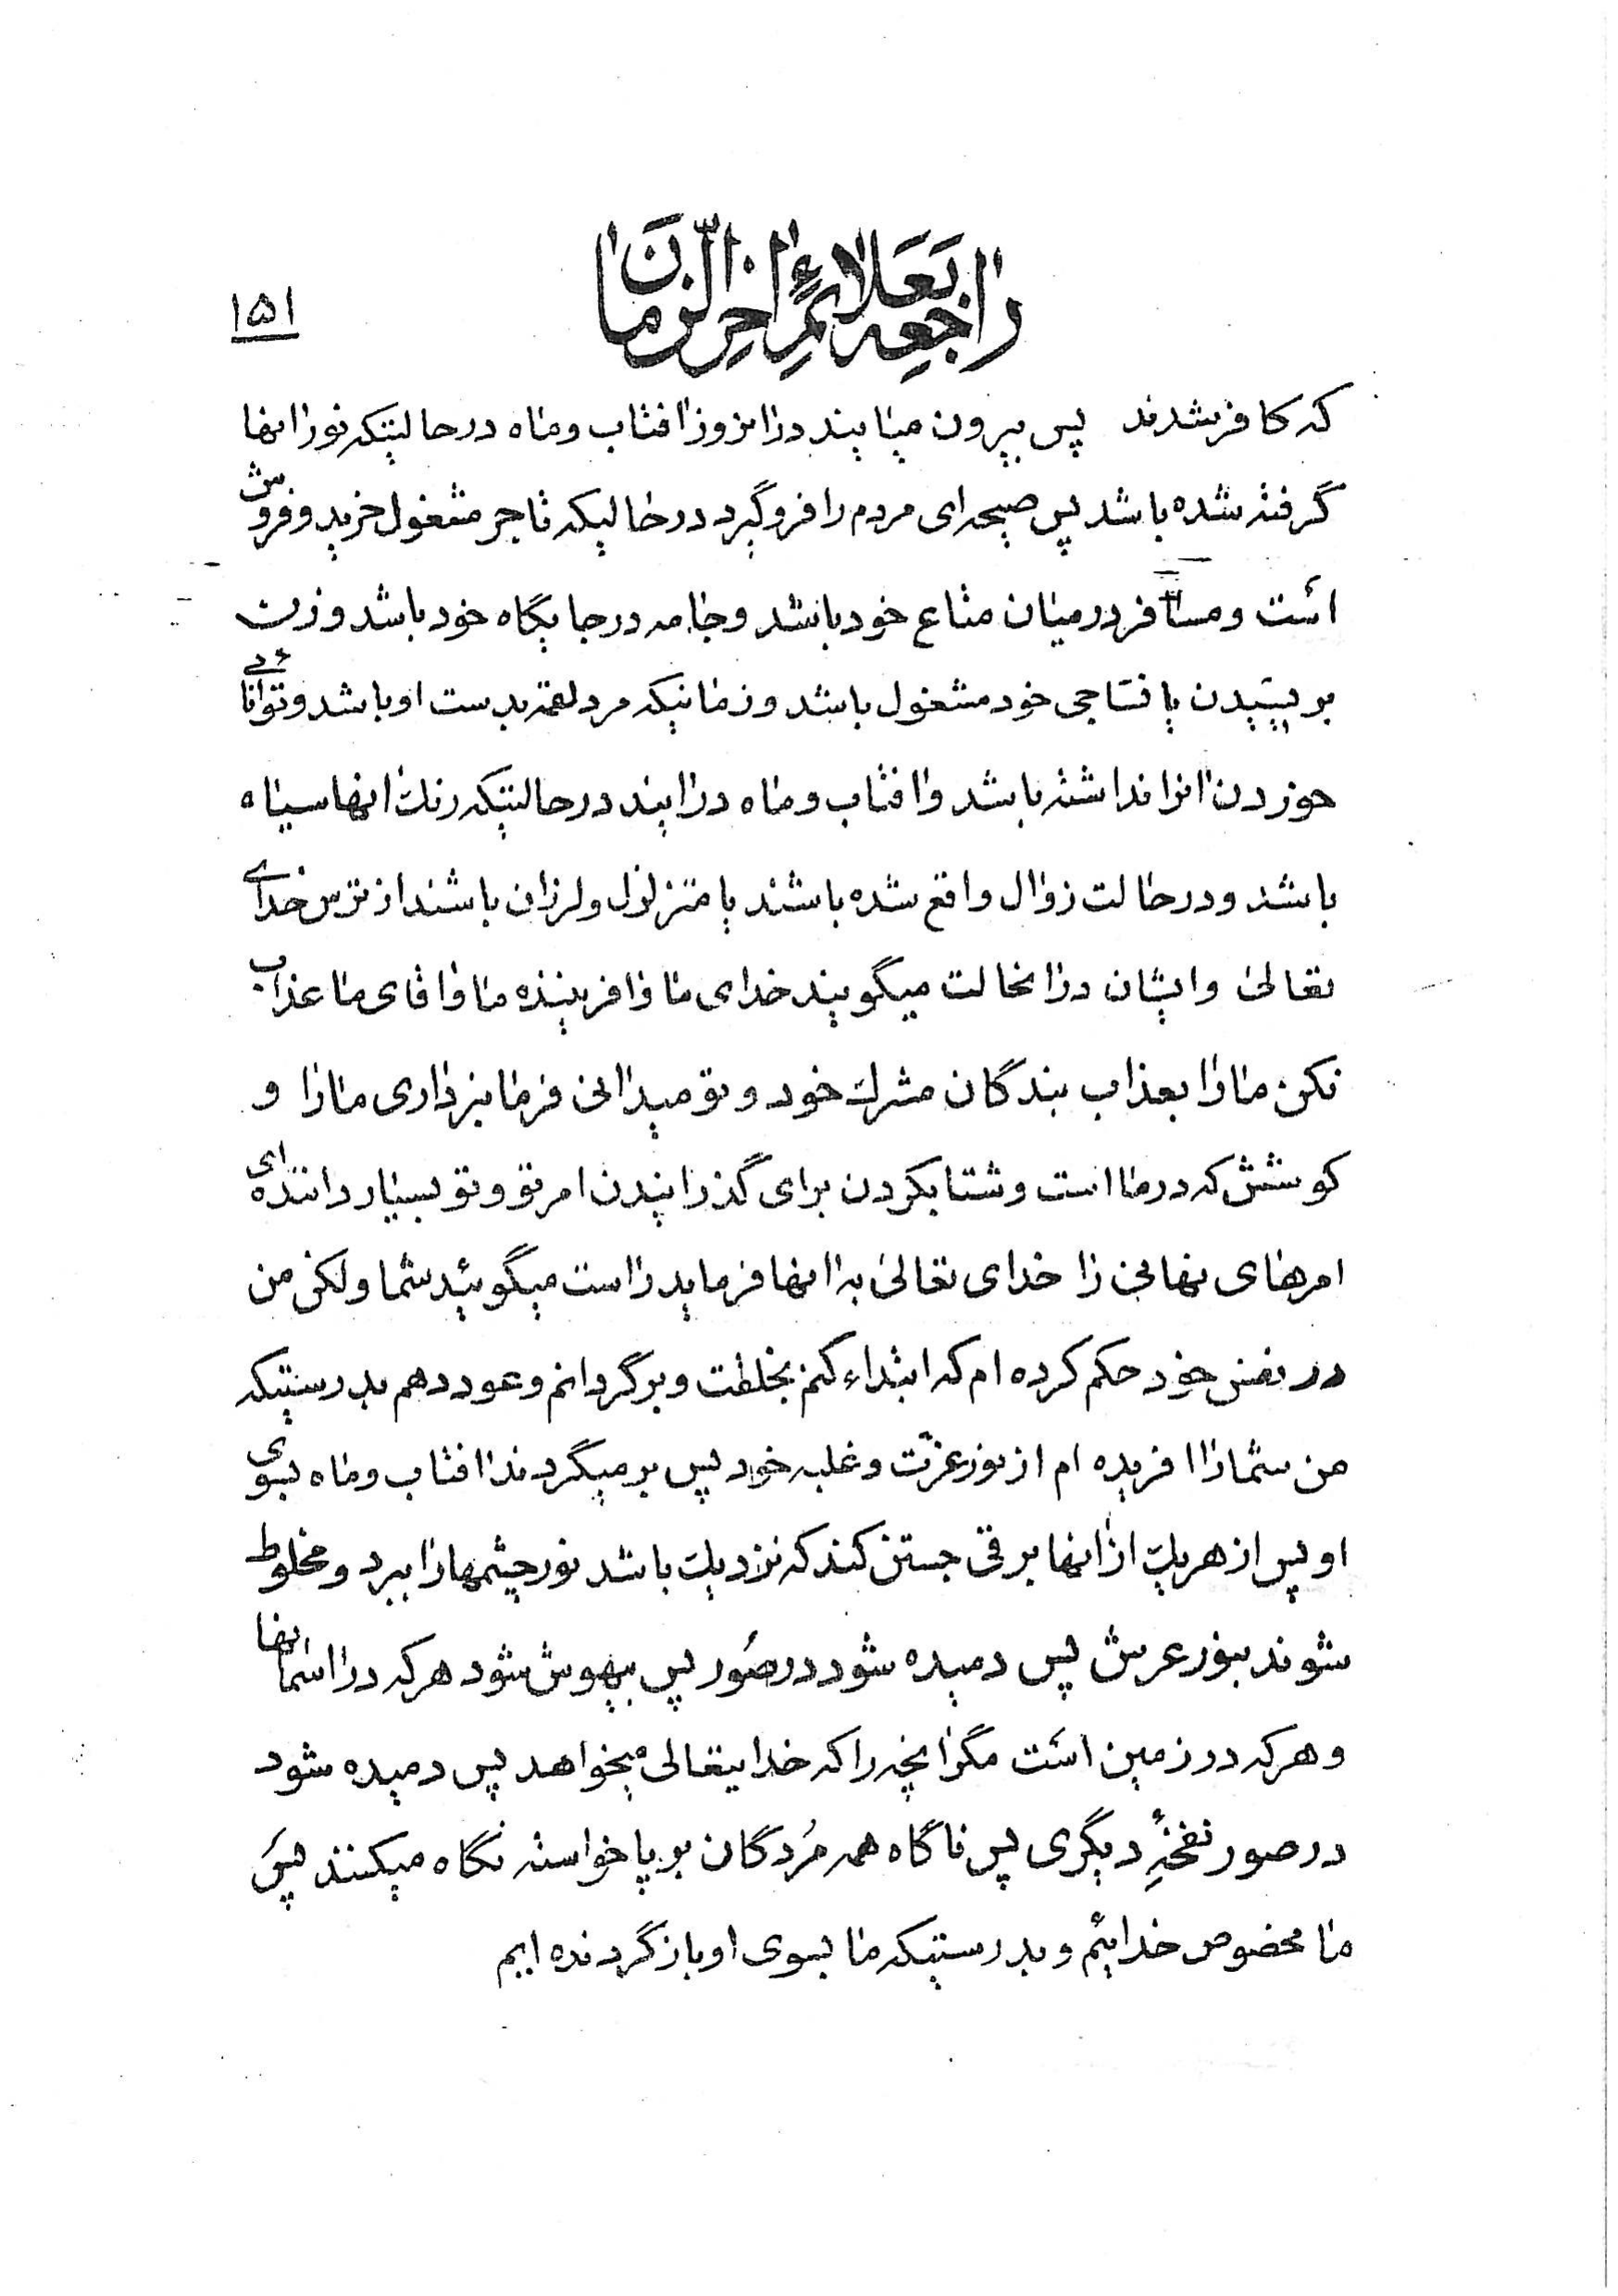 راجعه بعلائم اخر الزمان
۱۵۱
که کافر شدند پس بیرون میایند در انروز افتاب و ماه در حالیتکه نور انها
گرفته شده باشد پس صیحه ای مردم را فرو گیرد در حالیکه تاجر مشغول خرید و فروش
است و مسافر در میان متاع خود باشد و جامه در جایگاه خود باشد و زن
بر یسیدن یا نساجی خود مشغول باشد و زمانیکه مرد لقمه بدست او باشد و توانائی
خوردن انرا نداشته باشد و افتاب و ماه در ایند در حالتیکه رنگ انها سیاه
باشد و در حالت زوال واقع شده باشند یا متزلزل و لرزان باشند از ترس خدای
تعالی و ایشان در انحالت میگویند خدای ما و افریننده ما و اقای ما عذاب
نکن ما را بعذاب بندگان مشرک خود و تو میدانی فرمانبرداری ما را و
کوشش که در ما است و شتابکردن برای گذرانیدن امر تو و تو بسیار داننده ای
امرهای نهانی را خدای تعالی به انها فرماید راست میگوئید شما ولکن من
در نفس خود حکم کرده ام که ابتداء کنم بخلقت و برگردانم و عود دهم بدرستیکه
من شما را افریده ام از نور عزت و غلبه خود پس بر میگردند افتاب و ماه بسوی
او پس از هریک از انها برقی جستن کند که نزدیک باشد نور چشمها را ببرد و مخلوط
شوند بنور عرش پس دمیده شود در صُور پس بیهوش شود هر که در اسمانها
و هر که در زمین است مگر انچه را که خدایتعالی بخواهد پس دمیده شود
در صور نفخهٔ دیگری پس ناگاه همه مُردگان بر پا خواسته نگاه میکنند پس
ما مخصوص خدائیم و بدرستیکه ما بسوی او باز گردنده ایم